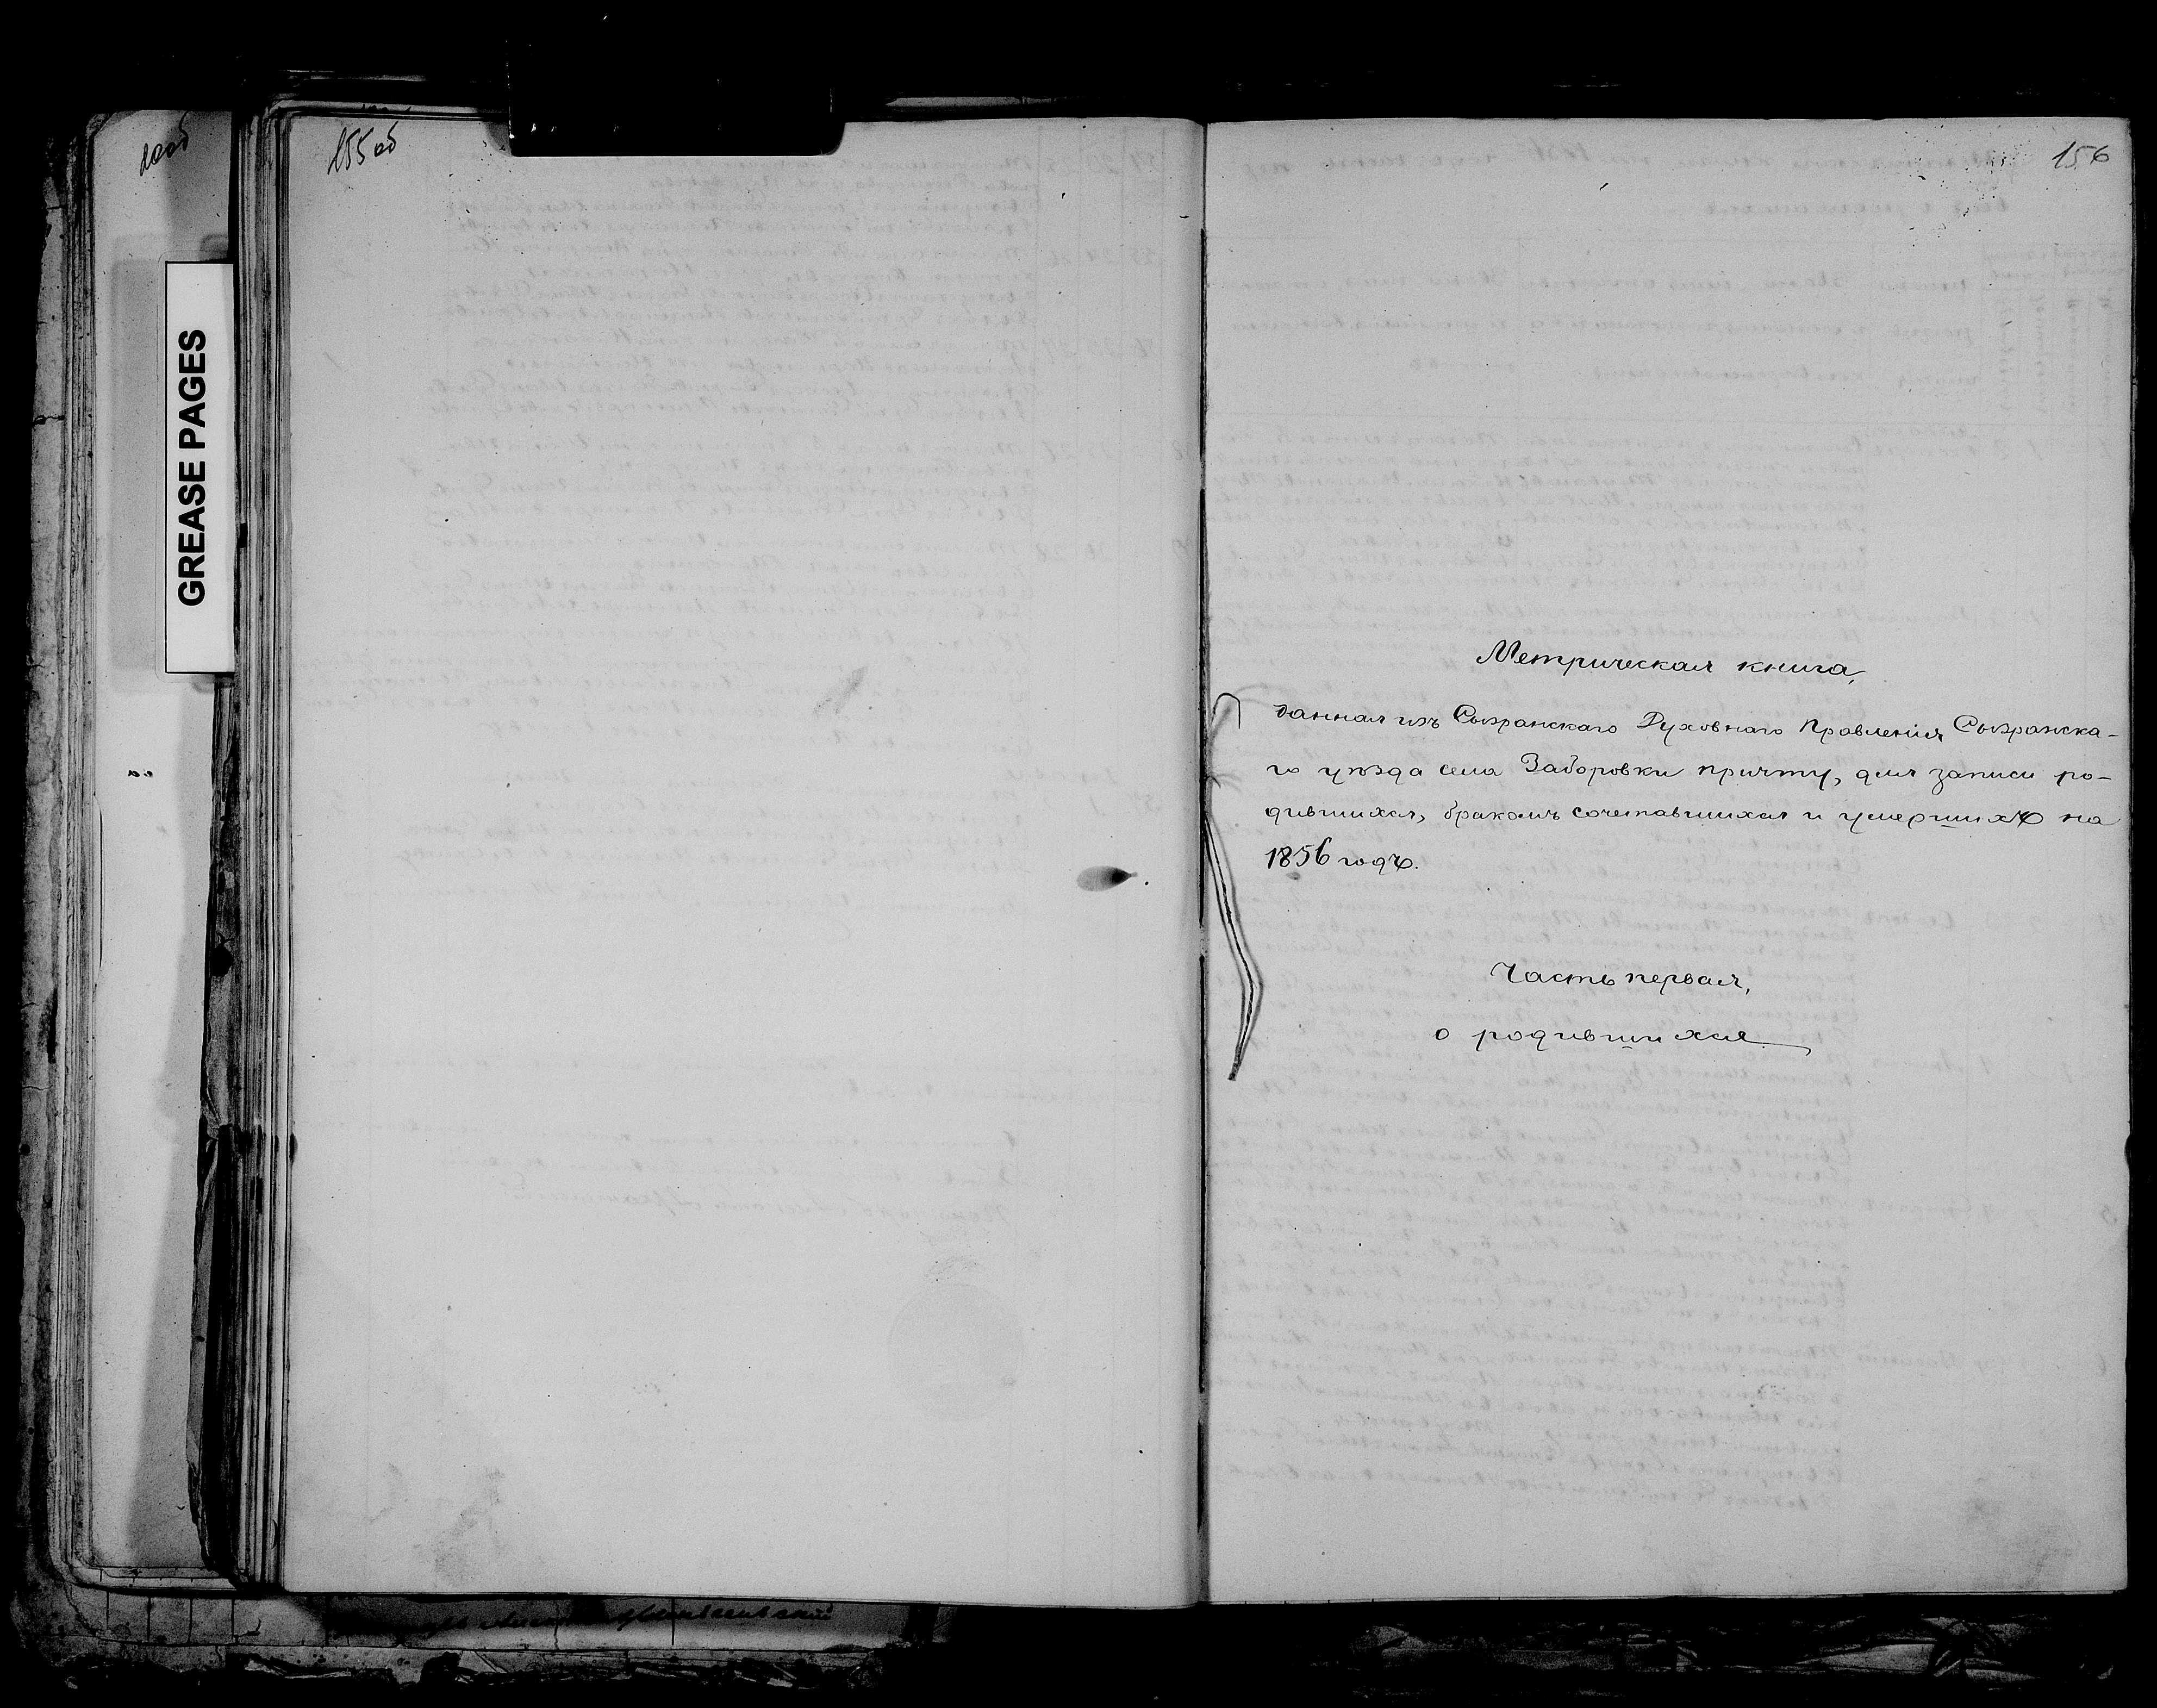 155об
GREASE PAGES
156
Метрическая книга,
данная изъ Сызранскаго Духовнаго Правленія Сызранска-
го уѣзда села Заборовки причту, для записи ро-
дившихся, бракомъ сочетавшихся и умершихъ на
1856 годъ.
Часть первая,
о родившихся